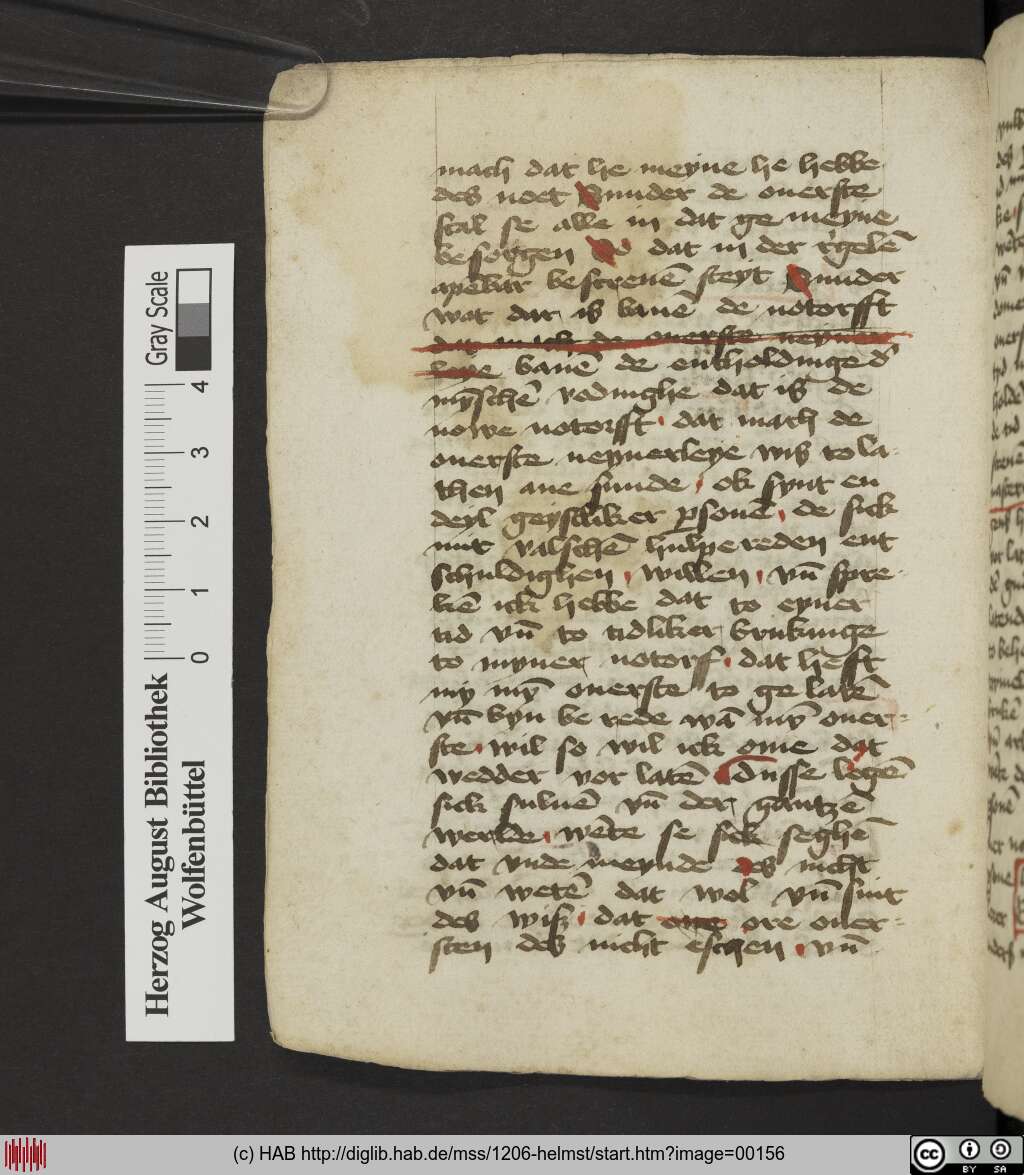 mach dat he meyne he hebbe
des noet Sunder de ouerste
scal se alle in dat ge meyne
besorgen So dat in der r'gelē
apēbar bescreuē steyt Sunder
wat dar is bauē de notorfft
dat mach de ouerste neyner
leye bauē de entholdinge d'
mȳschē vodinghe dat is de
nowe notorfft dat mach de
ouerste neynerleye wis to la
then ane sunde ok synt en
deyl geystliker psonē de sick
mit valschē hulpe reden ent
schuldighen willen vn̄ spre
kē ick hebbe dat to eyner
tid vn̄ to tidliker brukinge
to myner notorf dat hefft
my mȳ ouerste to ge latē
vn̄ byn be rede wā mȳ ouer
ste wil so wil ick ome dat
wedder vor latē dusse legē
sick suluē vn̄ der gantzē
werlde wēte se sick seghē
dat vnde meynde des nicht
vn̄ wetē dat wol vn̄ sint
des wiß dat ore ouer
sten des nicht eschen vn̄
Herzog August Bibliothek
Wolfenbüttel
Gray Scale
0 1 2 3 4
(c) HAB http://diglib.hab.de/mss/1206-helmst/start.htm?image=00156
cc BY SA